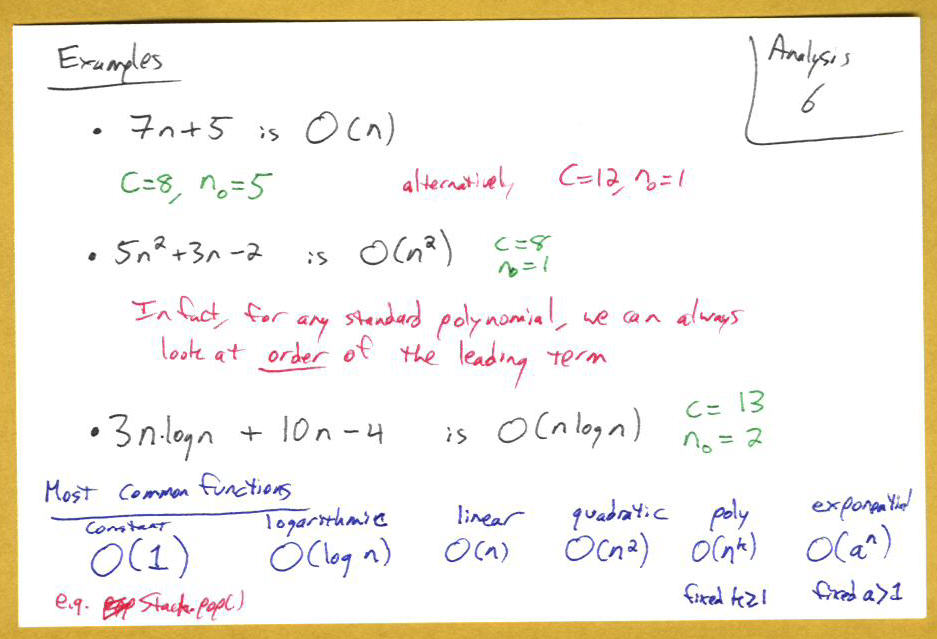 Examples
Analysis
6
• 7n+5 is O(n)
C=8, n₀=5 alternatively, C=12, n₀=1
• 5n²+3n-2 is O(n²) C=8
n₀=1
In fact, for any standard polynomial, we can always
look at order of the leading term
• 3n·logn + 10n-4 is O(nlogn) C= 13
n₀=2
Most common functions
constant logarithmic linear quadratic poly exponential
O(1) O(log n) O(n) O(n²) O(nᵏ) O(aⁿ)
e.g. Stack.pop() fixed k≥1 fixed a>1